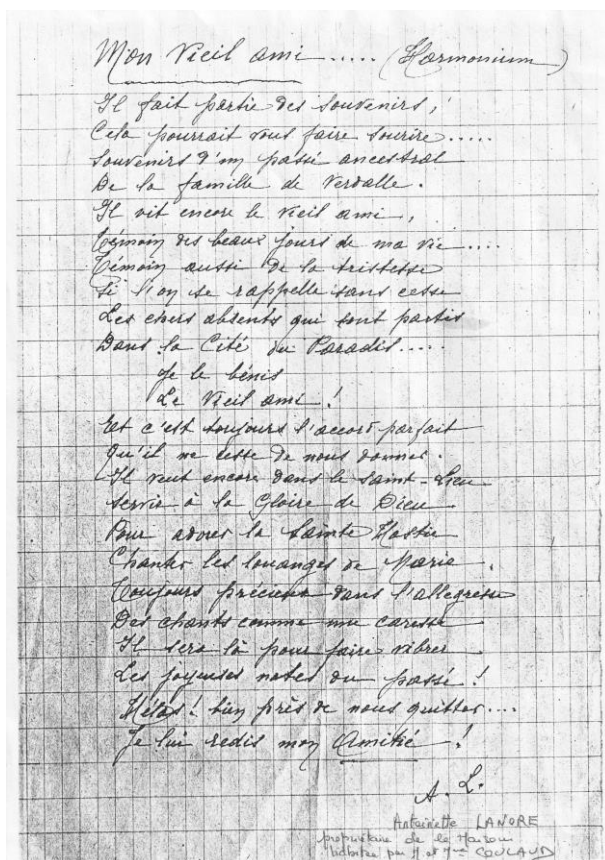 Mon Vieil ami..... (Harmonium)
Il fait partie des souvenirs,
Cela pourrait vous faire sourire.....
Souvenirs d'un passé ancestral
De la famille de Verdalle.
Il vit encore le vieil ami,
Témoin des beaux jours de ma vie....
Témoin aussi de la tristesse
Si l'on se rappelle sans cesse
Les chers absents qui sont partis
Dans la Cité du Paradis....
Je le bénis
Le Vieil ami !
Et c'est toujours l'accord parfait
Qu'il ne cesse de nous donner.
Il veut encore dans le Saint-Lieu
Servir à la Gloire de Dieu
Pour adorer la Sainte Hostie
Chanter les louanges de Marie.
Toujours précieux dans l'allégresse
Des chants comme une caresse
Il sera là pour faire vibrer
Les joyeuses notes du passé !
Hélas ! bien près de nous quitter....
Je lui redis mon Amitié !
A. L.
Antoinette LANORE
propriétaire de la Maison
habitée par M et Mme COULAUD